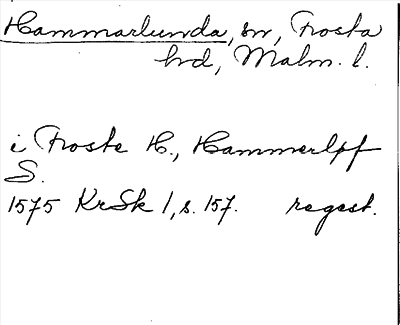 Hammarlunda, sn, Frosta
hd, Malm. l.
i Froste H., Hammerlpf
S.
1575 KrSk 1, s. 157. regest.